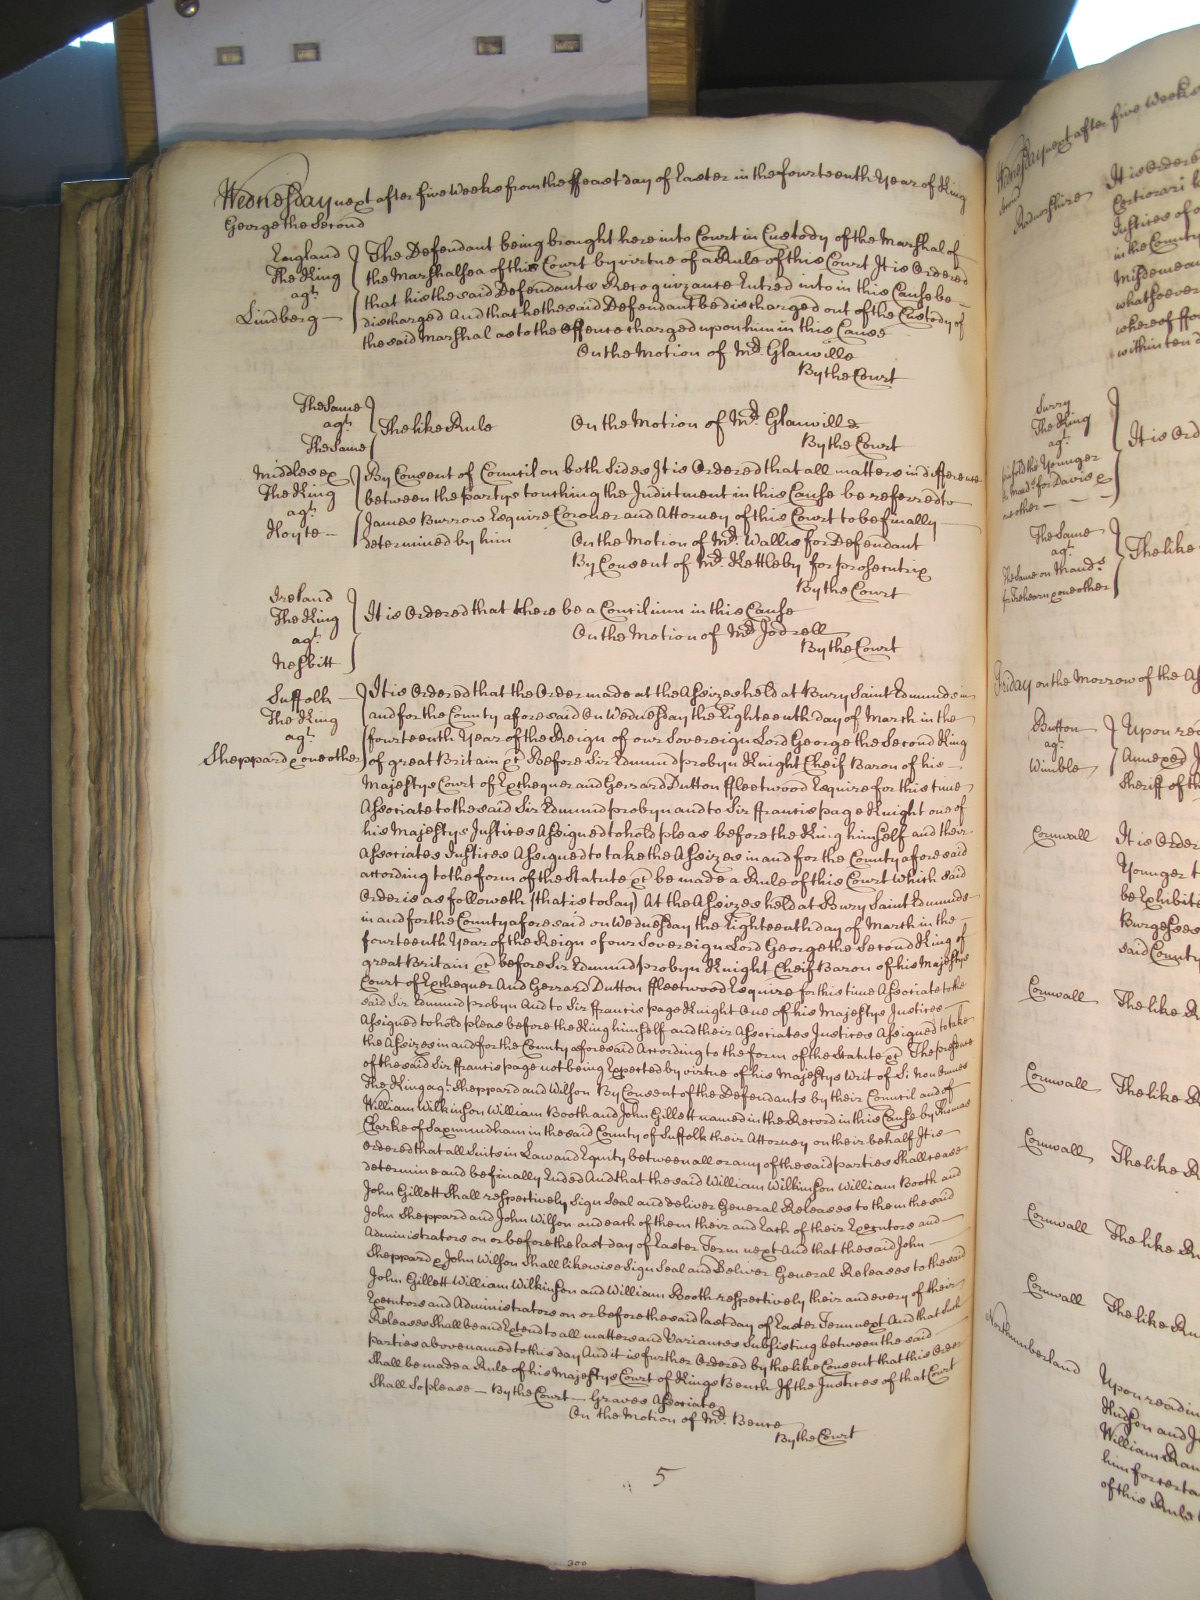 Wednesday next after five Weeks from the ffeast day of Easter in the fourteenth Year of King
George the Second
England
The King
agt.
Lindberg
The Defendant being brought here into Court in Custody of the Marshal of
the Marshalsea of this Court by virtue of a Rule of this Court It is Ordered
that his the said Defendants Recognizance Entred into in this Cause be
discharged And that he the said Defendant be discharged out of the Custody of
the said Marshal as to the Offence charged upon him in this Cause
On the Motion of Mr. Glanville
By the Court
The Same
agt.
The Same
The like Rule
On the Motion of Mr. Glanville
By the Court
Middlesex
The King
agt.
Hoyte
By Consent of Council on both Sides It is Ordered that all matters in difference
between the partys touching the Indictment in this Cause be referred to
James Burrow Esquire Coroner and Attorney of this Court to be finally
determined by him
On the Motion of Mr. Wallis for Defendant
By Consent of Mr. Kettleby for prosecutrix
By the Court
Ireland
The King
agt.
Nesbitt
It is Ordered that there be a Consilium in this Cause
On the Motion of Mr. Jodrell
By the Court
Suffolk
The King
agt.
Sheppard & one other
It is Ordered that the Order made at the Assizes held at Bury Saint Edmunds in
and for the County aforesaid On Wednesday the Eighteenth day of March in the
fourteenth Year of the Reign of our Sovereign Lord George the Second King
of great Britain &c Before Sir Edmund probyn Knight Cheif Baron of his
Majestys Court of Exchequer and Gerrard Dutton ffleetwood Esquire for this time
Associate to the said Sir Edmund probyn and to Sir ffrancis page Knight one of
his Majestys Justices Assigned to hold pleas before the King himself and their
Associates Justices Assigned to take the Assizes in and for the County aforesaid
according to the form of the Statute &c be made a Rule of this Court which said
Order is as followeth (that is to Say) At the Assizes held at Bury Saint Edmunds
in and for the County aforesaid on Wednesday the Eighteenth day of March in the
fourteenth Year of the Reign of our Sovereign Lord George the Second King of
great Britain &c before Sir Edmund probyn Knight Cheif Baron of his Majestys
Court of Exchequer And Gerrard Dutton ffleetwood Esquire for this time Associate to the
said Sir Edmund probyn And to Sir ffrancis page Knight One of his Majestys Justices
Assigned to hold pleas before the King himself and their Associates Justices Assigned to take
the Assizes in and for the County aforesaid According to the form of the Statute &c The presence
of the said Sir ffrancis page not being Expected by virtue of his Majestys Writ of Si non omnes
The King agt. Sheppard and Wilson By Consent of the Defendants by their Council and of
William Wilkinson William Booth and John Gillett named in the Record in this Cause by Thomas
Clarke of Saxmundham in the said County of Suffolk their Attorney on their behalf It is
ordered that all Suits in Law and Equity between all or any of the said parties Shall cease
determine and be finally Ended And that the said William Wilkinson William Booth and
John Gillett Shall respectively Sign Seal and deliver General Releases to them the said
John Sheppard and John Wilson and each of them their and Each of their Executors and
Administrators on or before the last day of Easter Term next And that the said John
Sheppard & John Wilson Shall likewise Sign Seal and Deliver General Releases to the said
John Gillett William Wilkinson and William Booth respectively their and every of their
Executors and Administrators on or before the said last day of Easter Term next And that Such
Releases Shall be and Extend to all matters and Variances Subsisting between the said
parties above named to this day And it is further Ordered by the like Consent that this Order
Shall be made a Rule of his Majestys Court of Kings Bench If the Justices of that Court
Shall So please By the Court Graves Associate
On the Motion of Mr. Bence
By the Court
5
300
Wednesday next after five Weeks
Radnorshire
It is Ordere
Certiorari
Justices of
in the County
Misdemean
whatsoever
whereof
within ten
Surry
The King
agt.
the Younger
for Davis &
one other
It is Ord
The Same
agt.
The Same on
for Trehearn & one other
The like
Friday on the Morrow of the
Button
agt.
Wimble
Upon rea
Annexed
Sheriff of th
Cornwall
It is Order
Younger t
be Exhibite
Burgesses
said County
Cornwall
The like R
Cornwall
The like R
Cornwall
The like R
Cornwall
The like Ru
Cornwall
The like Ru
Northumberland
Upon readin
Hudson and J
William Ram
him for certa
of this Rule